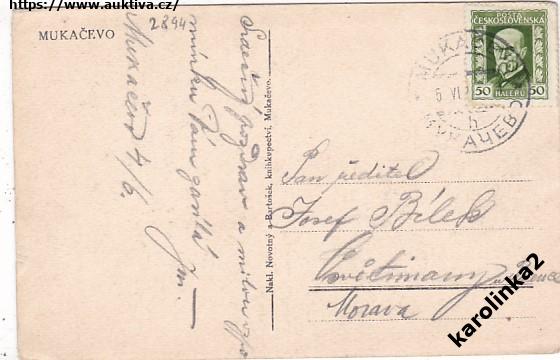 https://www.auktiva.cz/
2894
MUKAČEVO
Srdečný pozdrav a milou vzpo
mínku Vám zasílá
Jm.
Mukačevo 4/6.
Nakl. Novotný a Bartošek, knihkupectví, Mukačevo.
POŠTA
ČESKOSLOVENSKÁ
50 HALÉŘŮ 50
MUKAČ
6 VI
МУКАЧЕВО
Pan ředitel
Josef Bílek
Morava
karolinka2